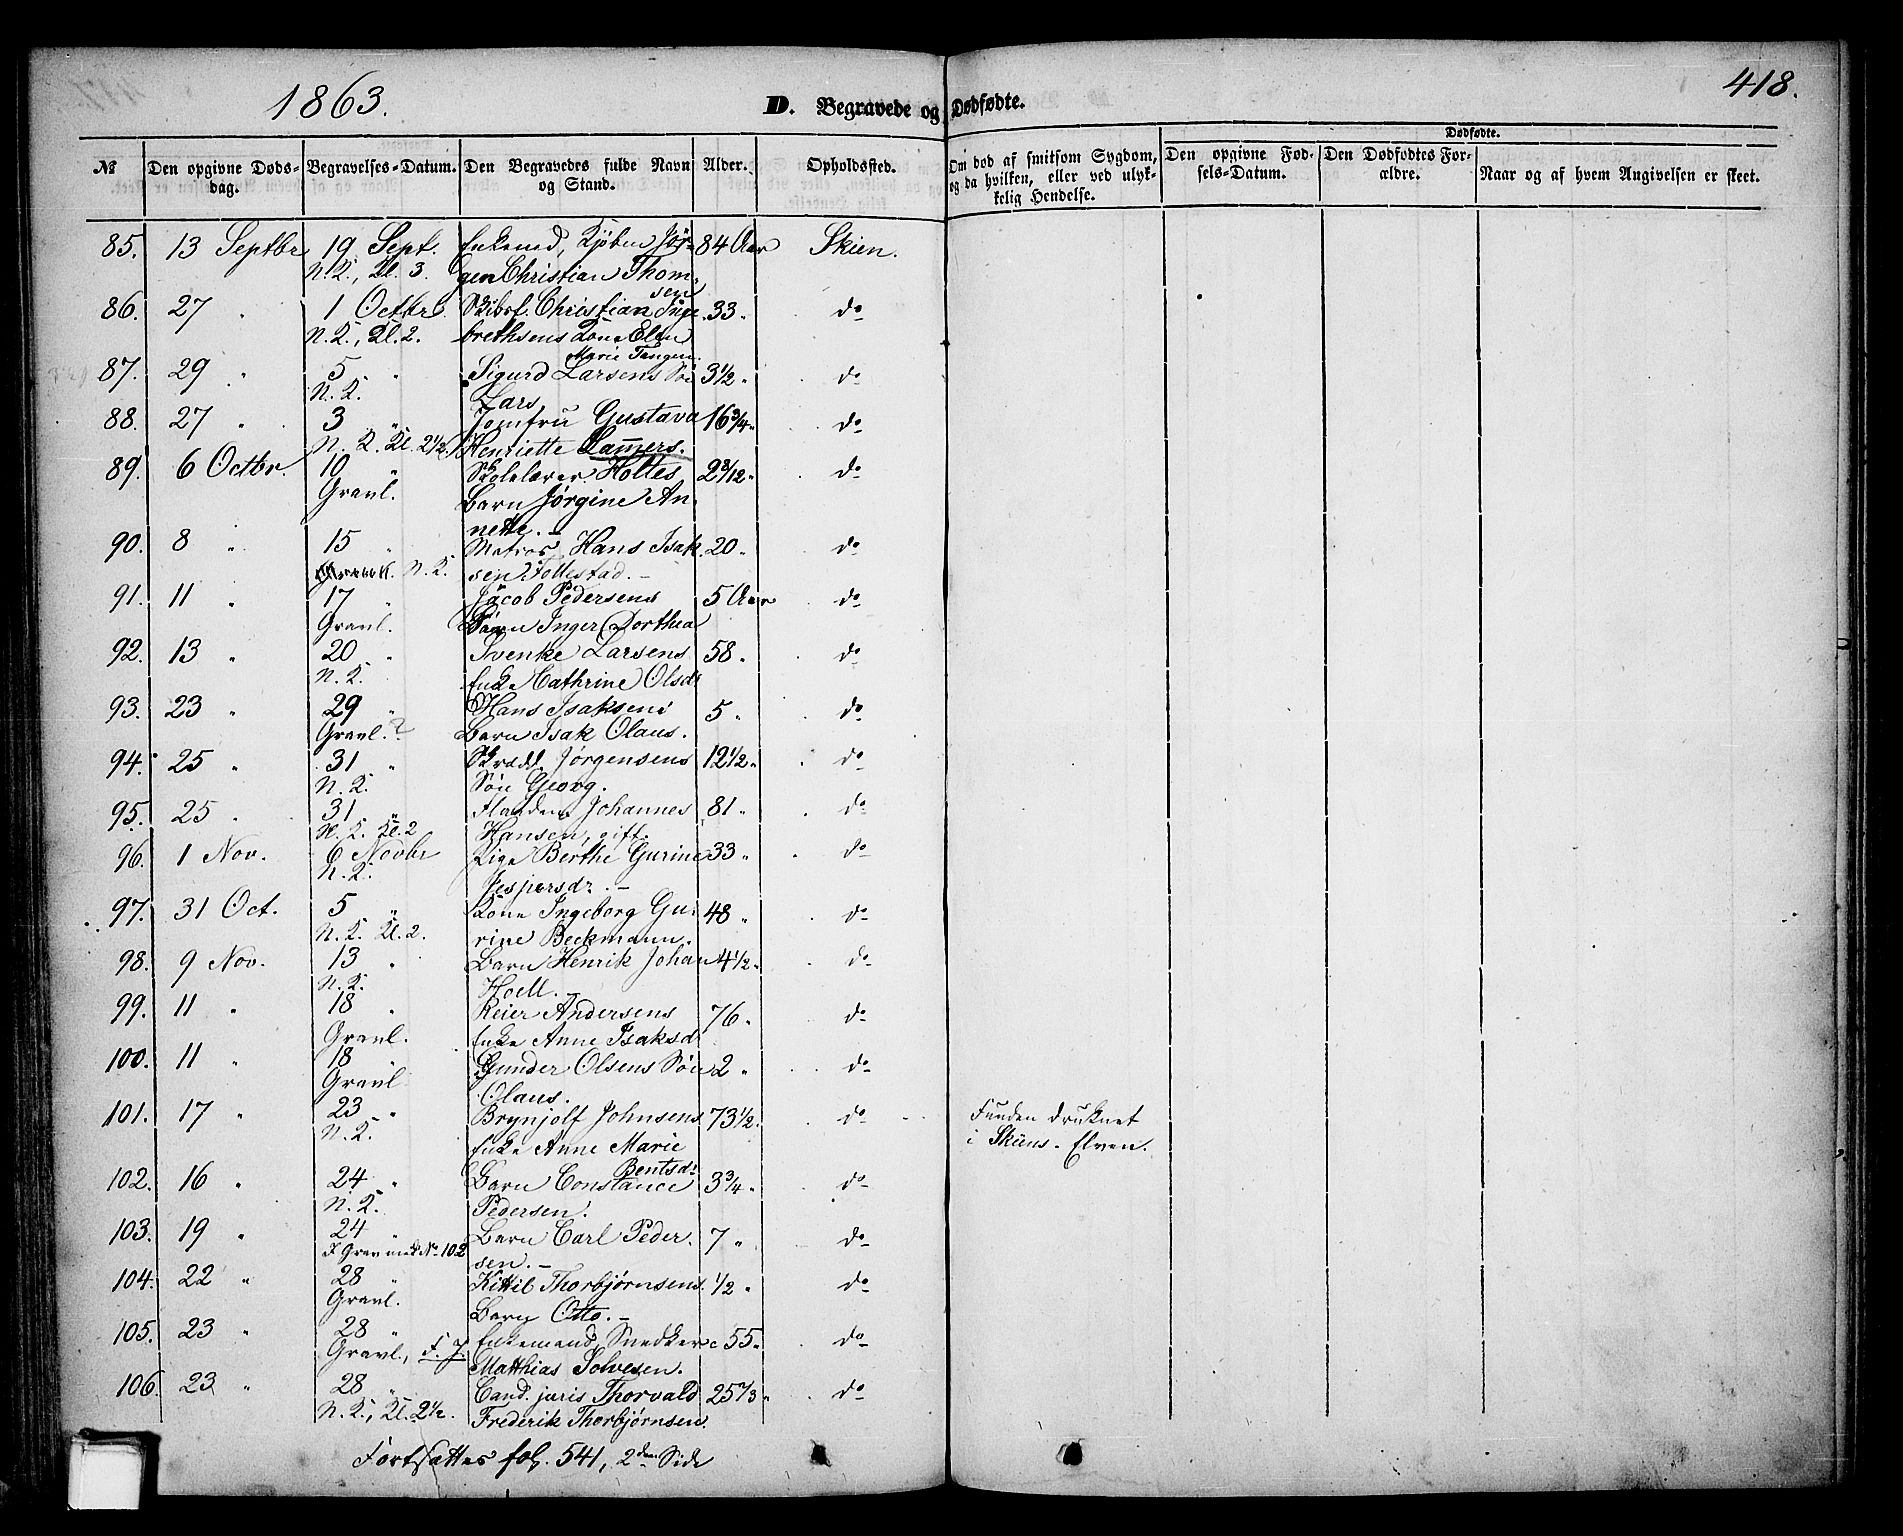 1863.
D. Begravede og Dødfødte.
418.
Dødfødte.
№
Den opgivne Døds-
dag.
Begravelses-Datum.
Den Begravedes fulde Navn
og Stand.
Alder.
Opholdssted.
Om død af smitsom Sygdom,
og da hvilken, eller ved ulyk-
kelig Hendelse.
Den opgivne Fød-
sels-Datum.
Den Dødfødtes For-
ældre.
Naar og af hvem Angivelsen er skeet.
85. 13 Septbr 19 Sept. Enkemd, Kjøbm Jør- 84 Aar Skien.
N. K., Kl. 3. gen Christian Thom-
sen
86. 27 " 1 Octbr. Skibsf. Christian Inge 33 " do
N. K., Kl. 2. brethsens Kone Elen
Marie Tangen.
87. 29 " 5 " Sigurd Larsens Sön 3½ " do
N. K. Lars
88. 27 " 3 " Jomfru Gustava 16¾ " do
N. K. Kl. 2½. Henriette Lam̄ers.
89. 6 Octbr. 10 " Skolelærer Holtes 2 3/12 " do
Gravl. Barn Jørgine An-
nette. –
90. 8 " 15 " Matros Hans Isak 20 " do
N. K. sen Follestad. –
91. 11 " 17 " Jacob Pedersens 5 Aar do
Gravl. Barn Inger Dorthea
92. 13 " 20 " Svenke Larsens 58 " do
N. K. Enke Cathrine Olsdr
93. 23 " 29 " Hans Isaksens 5 " do
Gravl. ? Barn Isak Olaus.
94. 25 " 31 " Skrædd. Jørgensens 12½ " do
N. K. Sön Georg.
95. 25 " 31 " Johannes 81 " do
N. K. Kl. 2 Hansen, gift.
96. 1 Nov. 6 Novbr Pige Berthe Gurine 33 " do
N. K. Jespersdr. –
97. 31 Oct. 5 " Kone Ingeborg Gu- 48 " do
N. K. Kl. 2. rine Beckmann.
98. 9 Nov. 13 " Barn Henrik Johan 4½ " do
N. K. Hoell. –
99. 11 " 18 " Reier Andersens 76 " do
Gravl. Enke Anne Isaksd
100. 11 " 18 " Gunder Olsens Sön 2 " do
Gravl Olaus.
101. 17 " 23 " Brynjolf Johnsens 73½ " do Funden druknet
N. K. Enke Anne Marie i Skiens-Elven.
Bentsdr
102. 16 " 24 " Barn Constance 3¾ " do
N. K. Pedersen.
103. 19 " 24 " Barn Carl Peder- 7 " do
I Grav med No 102 sen. –
104. 22 " 28 " Kittil Thorbjørnsens ½ " do
Gravl. Barn Otto. –
105. 23 " 28 " Enkemand, Snedker 55 " do
Gravl., F. J. Matthias Solvesen.
106. 23 " 28 " Cand. juris Thorvald 25⅔ " do
N. K., Kl. 2½. Frederik Thorbjørnsen.
Fortsættes fol. 541, 2den Side